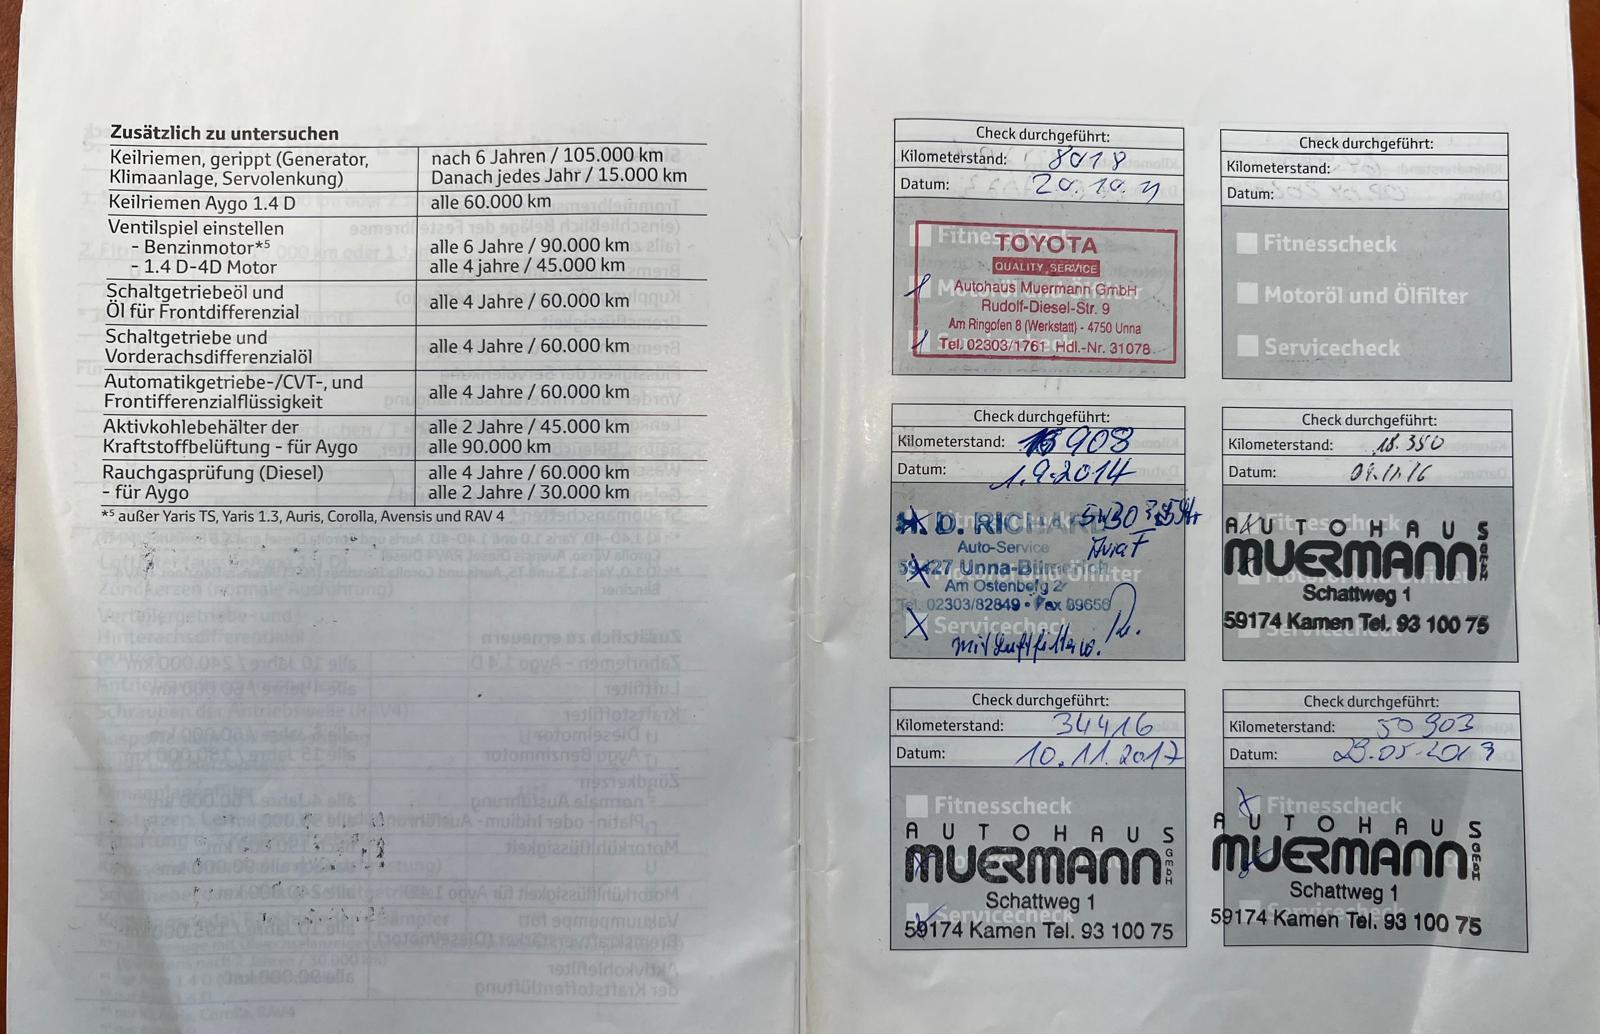 Zusätzlich zu untersuchen
Keilriemen, gerippt (Generator, Klimaanlage, Servolenkung) nach 6 Jahren / 105.000 km
Danach jedes Jahr / 15.000 km
Keilriemen Aygo 1.4 D alle 60.000 km
Ventilspiel einstellen
- Benzinmotor*5 alle 6 Jahre / 90.000 km
- 1.4 D-4D Motor alle 4 jahre / 45.000 km
Schaltgetriebeöl und
Öl für Frontdifferenzial alle 4 Jahre / 60.000 km
Schaltgetriebe und
Vorderachsdifferenzialöl alle 4 Jahre / 60.000 km
Automatikgetriebe-/CVT-, und
Frontifferenzialflüssigkeit alle 4 Jahre / 60.000 km
Aktivkohlebehälter der alle 2 Jahre / 45.000 km
Kraftstoffbelüftung - für Aygo alle 90.000 km
Rauchgasprüfung (Diesel) alle 4 Jahre / 60.000 km
- für Aygo alle 2 Jahre / 30.000 km
*5 außer Yaris TS, Yaris 1.3, Auris, Corolla, Avensis und RAV 4
Check durchgeführt:
Kilometerstand: 8018
Datum: 20.10.11
TOYOTA
QUALITY SERVICE
Autohaus Muermann GmbH
Rudolf-Diesel-Str. 9
Am Ringofen 8 (Werkstatt) - 4750 Unna
Tel. 02303/1761 Hdl.-Nr. 31078
Check durchgeführt:
Kilometerstand:
Datum:
Fitnesscheck
Motoröl und Ölfilter
Servicecheck
Check durchgeführt:
Kilometerstand: 908
Datum: 1.9.2014
D. RICHARD 5W30
Auto-Service
59427 Unna-Billmerich
Am Ostenberg 2
Tel. 02303/82849 • Fax 89656
Servicecheck
mit Luftfilter
Check durchgeführt:
Kilometerstand: 18.350
Datum: 09.11.16
AUTOHAUS
MUERMANN GmbH
Schattweg 1
59174 Kamen Tel. 93 100 75
Check durchgeführt:
Kilometerstand: 34416
Datum: 10.11.2017
Fitnesscheck
AUTOHAUS
MUERMANN GmbH
Schattweg 1
Servicecheck
59174 Kamen Tel. 93 100 75
Check durchgeführt:
Kilometerstand: 50903
Datum: 29.05.2019
Fitnesscheck
AUTOHAUS
MUERMANN GmbH
Schattweg 1
59174 Kamen Tel. 93 100 75